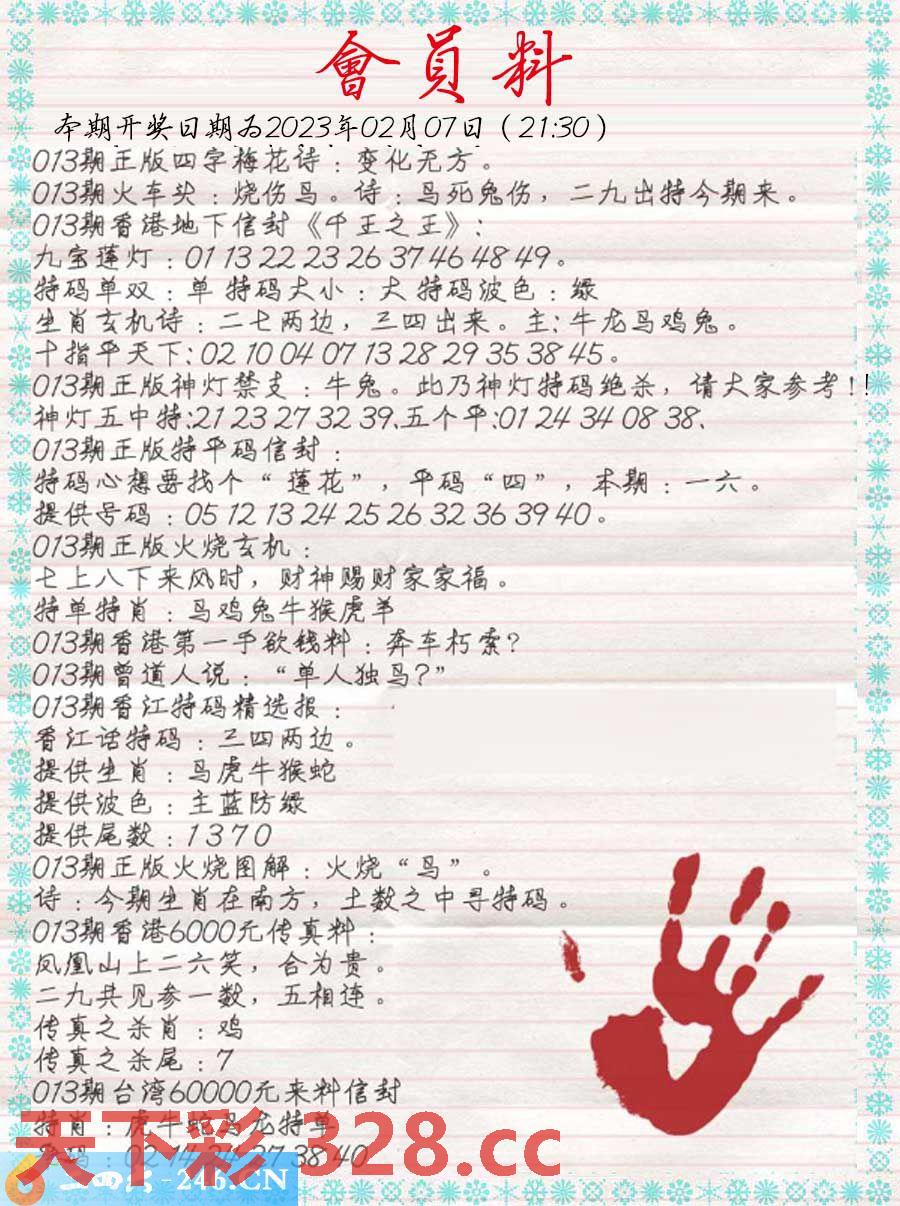 會員料
本期开奖日期为2023年02月07日（21:30）
013期正版四字梅花诗：变化无方。
013期火车头：烧伤鸟。诗：鸟死兔伤，二九出特今期来。
013期香港地下信封《千王之王》：
九宝莲灯：01 13 22 23 26 37 46 48 49。
特码单双：单 特码大小：大 特码波色：绿
生肖玄机诗：二七两边，三四出来。主：牛龙马鸡兔。
十指平天下：02 10 04 07 13 28 29 35 38 45。
013期正版神灯禁支：牛兔。此乃神灯特码绝杀，请大家参考！！
神灯五中特：21 23 27 32 39、五个平：01 24 34 08 38、
013期正版特平码信封：
特码心想要找个“莲花”，平码“四”，本期：一六。
提供号码：05 12 13 24 25 26 32 36 39 40。
013期正版火烧玄机：
七上八下来风时，财神赐财家家福。
特单特肖：马鸡兔牛猴虎羊
013期香港第一手欲钱料：奔车朽索？
013期曾道人说：“单人独马？”
013期香江特码精选报：
香江话特码：三四两边。
提供生肖：马虎牛猴蛇
提供波色：主蓝防绿
提供尾数：1 3 7 0
013期正版火烧图解：火烧“鸟”。
诗：今期生肖在南方，土数之中寻特码。
013期香港6000元传真料：
凤凰山上二六笑，合为贵。
二九共见参一数，五相连。
传真之杀肖：鸡
传真之杀尾：7
013期台湾60000元来料信封
特肖：虎牛蛇马龙特单
02 14 24 37 38 40
天下彩 328.cc
二四六-246.CN